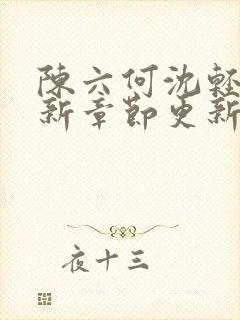 陳六何沈輕
新章節更新
夜十三